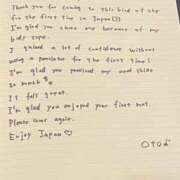 Thank you for coming to this kind of shop
for the first time in Japan(3)
I'm glad you chose me because of my
body type.
I gained a lot of confidence without
using a translator for the first time!
I'm glad you praised my new skirt
so much
It felt great.
I'm glad you enjoyed your first meet.
Please come again.
Enjoy Japan♡
OTO